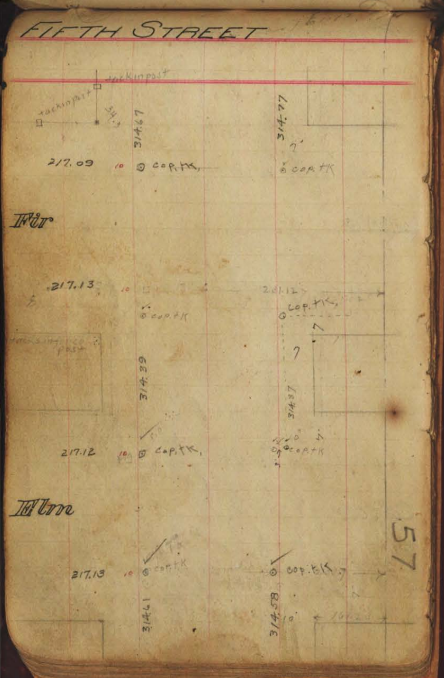 FIFTH STREET
tack in post
tack in post
314.67
314.77
7'
217.09 10 cop. tK,
cop. tK
Fir
217.13 10
201.12
cop. tK,
cop. tK
7
7
314.39
314.37
217.12 10 cop. tK,
cop. tK
Elm
57
217.13 10 cop. tK
cop. tK,
314.61
314.58
10'